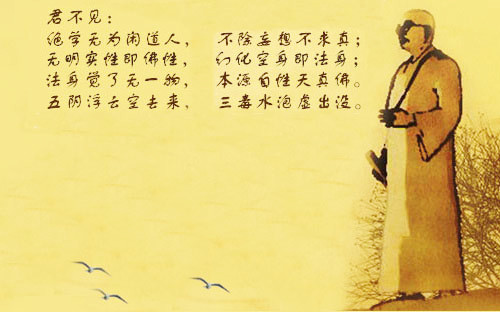 君不见：
绝学无为闲道人， 不除妄想不求真；
无明实性即佛性， 幻化空身即法身；
法身觉了无一物， 本源自性天真佛。
五阴浮云空去来， 三毒水泡虚出没。